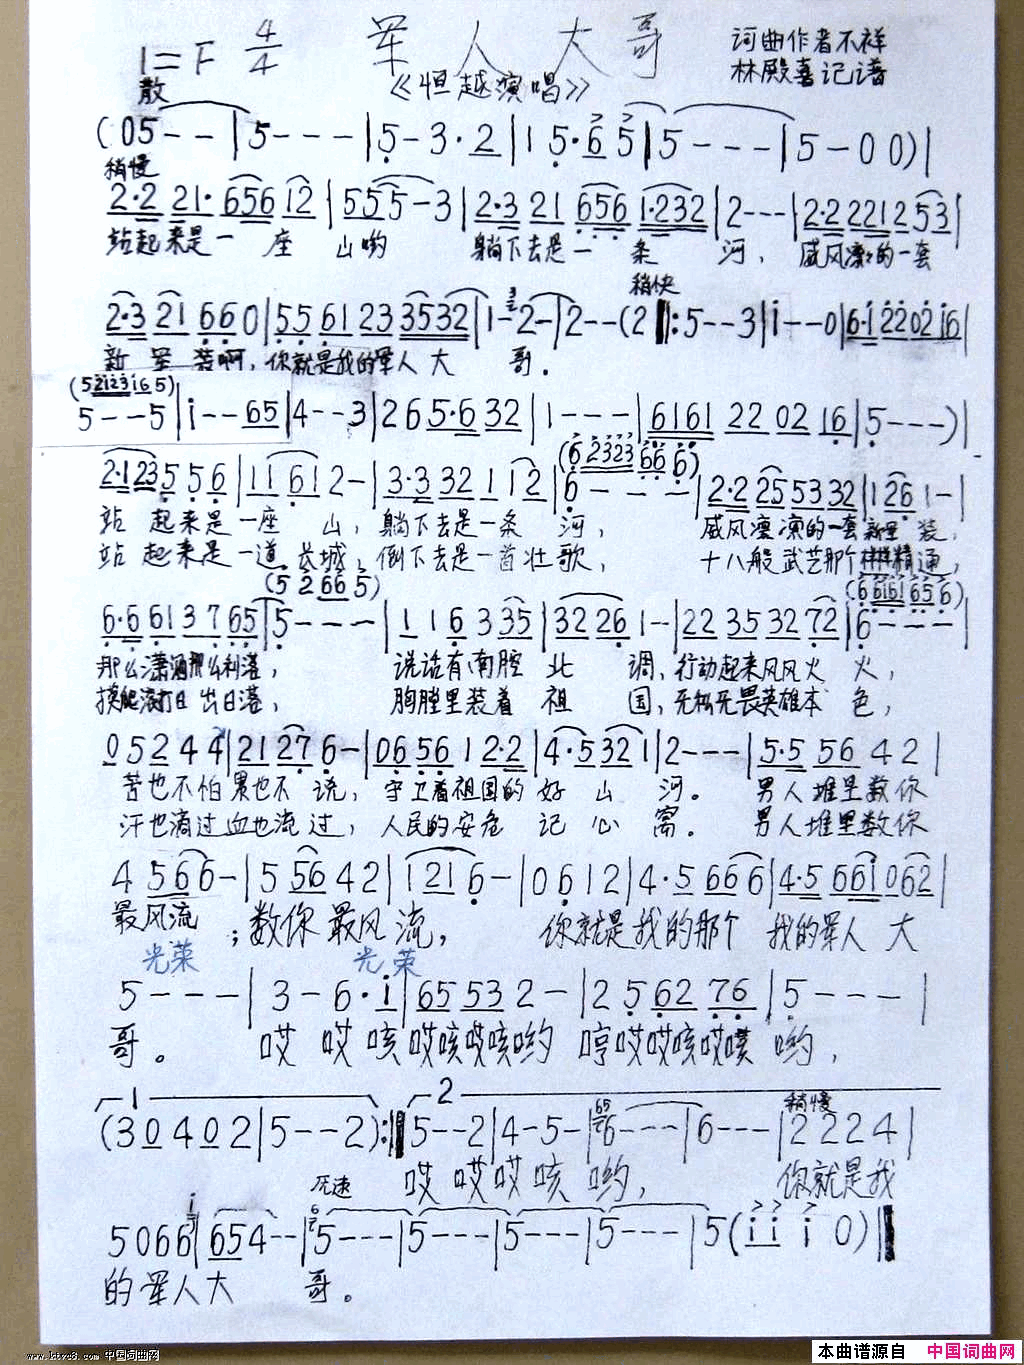 1=F 4/4 军人大哥 词曲作者不祥
《恒越演唱》 林殿喜记谱
散
(05--|5----|5-3·2|15·65|5---|5-00)|
稍慢
2·2 21· 656 12|555-3|2·3 21 656 1·232|2---|2·2 221 253|
站起来是一座山哟 躺下去是一条河，威风凛凛的一套
稍快
2·3 21 660|55 61 23 3532|1-2-|2--(2‖:5--3|i--0|6·i 22 02 i6|
新军装啊，你就是我的军人大哥。
(52i23i65)
5--5|i--65|4--3|26 5·6 32|1---|6161 22 02 16|5---)|
(6 2323 66 6)
2·123 556|1161 2-|3·3 32 1 12|6---|2·2 25 53 32|126 1-|
站起来是一座山，躺下去是一条河，威风凛凛的一套新军装，
站起来是一道长城，倒下去是一首壮歌，十八般武艺那个样样精通，
(5 2 66 5) (6 6161 65 6)
6·6 61 37 65|5---|116 335|32 26 1-|22 35 32 72|6---|
那么潇洒那么利落，说话有南腔北调，行动起来风风火火，
摸爬滚打日出日落，胸膛里装着祖国，无私无畏英雄本色，
05244|21 27 6-|06 56 1 2·2|4·5 321|2---|5·5 56 42|
苦也不怕累也不说，守卫着祖国的好山河。男人堆里数你
汗也滴过血也流过，人民的安危记心窝。男人堆里数你
4 566-|5 56 42|121 6-|0612|4·5 666|4·5 66i 062|
最风流；数你最风流，你就是我的那个我的军人大
光荣 光荣
5---|3-6·i|65 53 2-|25 62 76|5---|
哥。哎哎咳哎咳哎咳哟哼哎哎咳哎嗼哟，
1 2
(30402|5--2):‖5--2|4-5-|6---|6---|2224|
稍慢
哎哎哎咳哟，你就是我
无速
5066|654--|5---|5---|5---|5---|5(ii i 0)‖
的军人大哥。
www.ktvc8.com 中国词曲网
本曲谱源自 中国词曲网